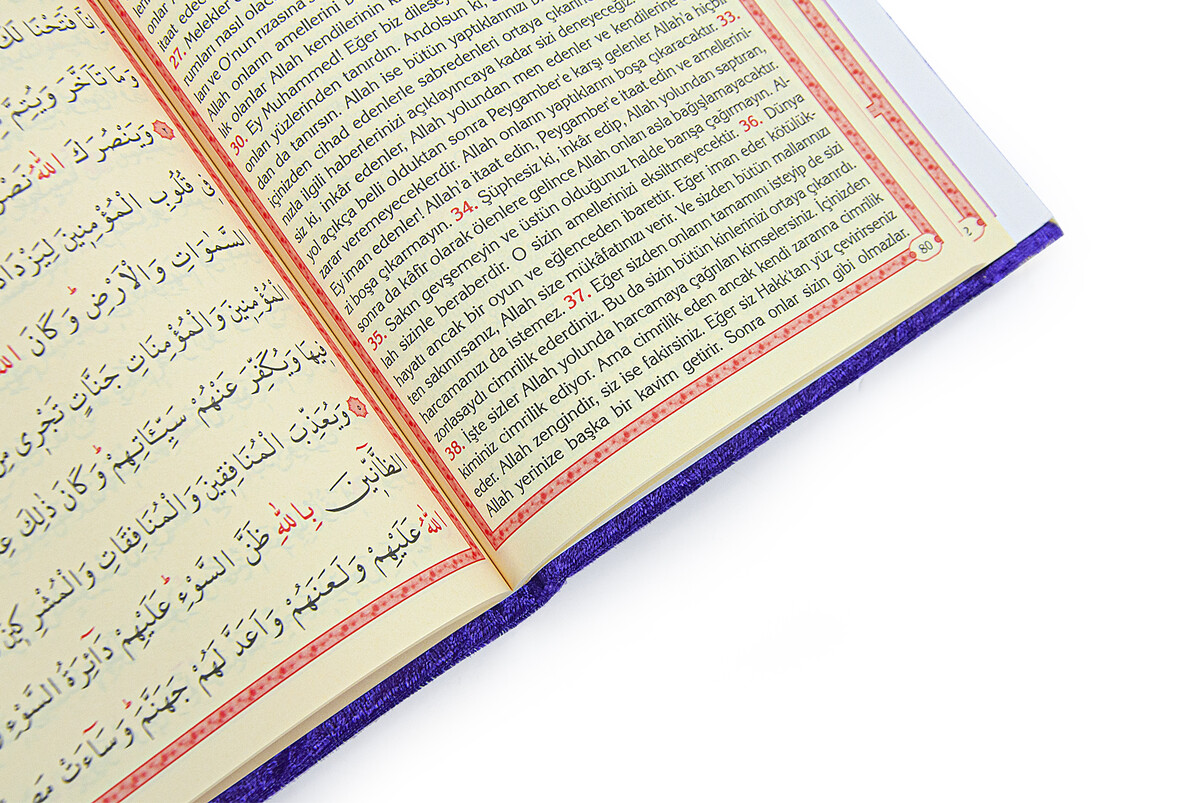 itaat edec
27. Melekler
rumları nasıl olacak
ları ve O'nun rızasına
Allah, onların amellerini
lik olanlar Allah kendilerinin
30. Ey Muhammed! Eğer biz
onları yüzlerinden tanırdın. Andolsun ki,
dan da tanırsın. Allah ise bütün yaptıklarınızı
içinizden cihad edenlerle sabredenleri ortaya
nızla ilgili haberlerinizi açıklayıncaya kadar sizi deneyeceğiz
siz ki, inkâr edenler, Allah yolundan men edenler ve kendilerine
yol açıkça belli olduktan sonra Peygamber'e karşı gelenler Allah'a hiçbir
zarar veremeyeceklerdir. Allah onların yaptıklarını boşa çıkaracaktır. 33.
Ey iman edenler! Allah'a itaat edin, Peygamber'e itaat edin ve amellerini-
zi boşa çıkarmayın. 34. Şüphesiz ki, inkâr edip, Allah yolundan saptıran,
sonra da kâfir olarak ölenlere gelince Allah onları asla bağışlamayacaktır.
35. Sakın gevşemeyin ve üstün olduğunuz halde barışa çağırmayın. Al-
lah sizinle beraberdir. O sizin amellerinizi eksiltmeyecektir. 36. Dünya
hayatı ancak bir oyun ve eğlenceden ibarettir. Eğer iman eder kötülük-
ten sakınırsanız, Allah size mükâfatınızı verir. Ve sizden bütün mallarınızı
harcamanızı da istemez. 37. Eğer sizden onların tamamını isteyip de sizi
zorlasaydı cimrilik ederdiniz. Bu da sizin bütün kinlerinizi ortaya çıkarırdı.
38. İşte sizler Allah yolunda harcamaya çağrılan kimselersiniz. İçinizden
kiminiz cimrilik ediyor. Ama cimrilik eden ancak kendi zararına cimrilik
eder. Allah zengindir, siz ise fakirsiniz. Eğer siz Hakk'tan yüz çevirirseniz
Allah yerinize başka bir kavim getirir. Sonra onlar sizin gibi olmazlar.
80
2
اِنَّا فَتَحْنَا لَكَ
وَمَا تَاَخَّرَ وَيُتِمَّ
وَيَنْصُرَكَ اللّٰهُ نَصْرًا
فِى قُلُوبِ الْمُؤْمِنٖينَ لِيَزْدَادُ
السَّمٰوَاتِ وَالْاَرْضِ وَكَانَ اللّٰ
الْمُؤْمِنٖينَ وَالْمُؤْمِنَاتِ جَنَّاتٍ تَجْرٖى مِنْ
فٖيهَا وَيُكَفِّرَ عَنْهُمْ سَيِّـَٔاتِهِمْ وَكَانَ ذٰلِكَ عِ
۝٥ وَيُعَذِّبَ الْمُنَافِقٖينَ وَالْمُنَافِقَاتِ وَالْمُشْرِكٖينَ
الظَّٓانّٖينَ بِاللّٰهِ ظَنَّ السَّوْءِ عَلَيْهِمْ دَٓائِرَةُ السَّوْءِ
اللّٰهُ عَلَيْهِمْ وَلَعَنَهُمْ وَاَعَدَّ لَهُمْ جَهَنَّمَ وَسَٓاءَتْ مَصٖ